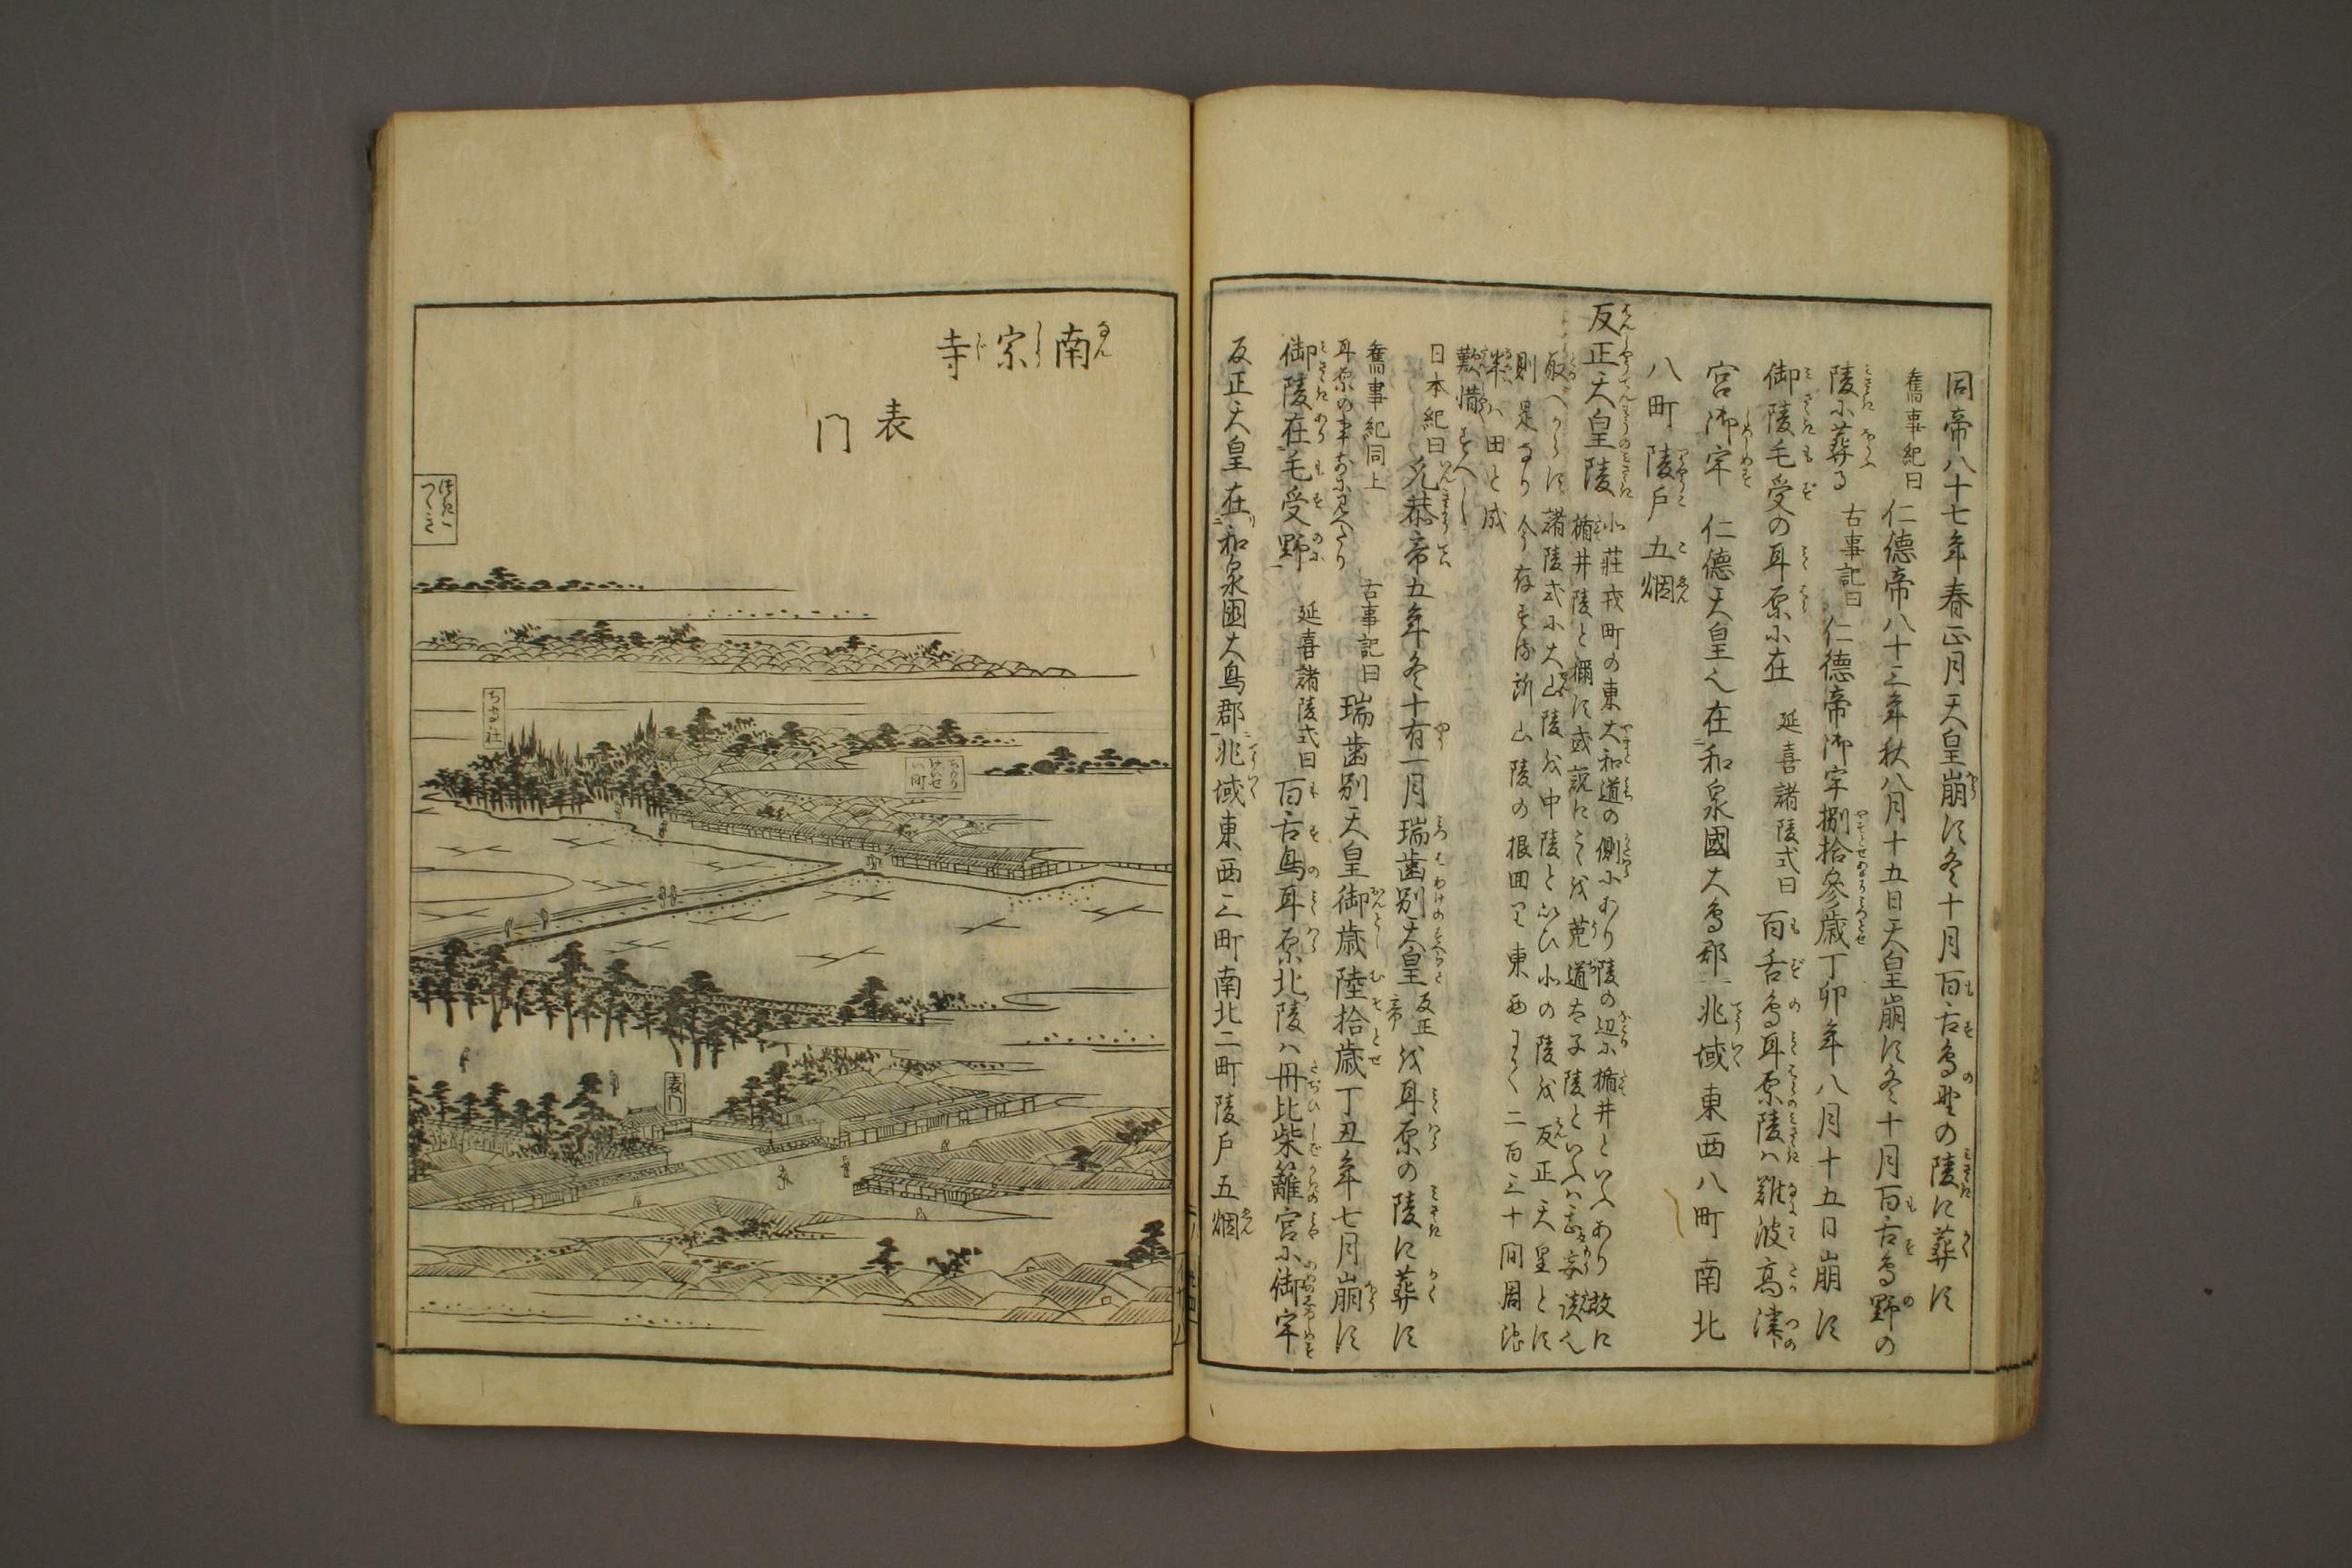 同帝八十七年春正月天皇崩ず冬十月百舌鳥野の陵に葬す
舊事紀曰 仁德帝八十三年秋八月十五日天皇崩ず冬十月百舌鳥野の
陵に葬る 古事記曰 仁德帝御宇捌拾參歳丁卯年八月十五日崩ず
御陵毛受の耳原に在 延喜諸陵式曰 百舌鳥耳原陵ハ難波高津
宮御宇 仁德天皇之在和泉國大鳥郡兆域東西八町南北
八町陵戸五烟
反正天皇陵 北莊戎町の東大和道の側にあり陵の辺に楯井といふあり故に
楯井陵と稱ず或説にこれを菟道太子陵といふハ妄談也
取べからず諸陵式に大山陵を中陵といひ北の陵を反正天皇とす
則是なり今存する所山陵の根囲り東西わづく二百三十間周池
半ハ田と成
歎惜すべし
日本紀曰 允恭帝五年冬十有一月瑞齒別天皇反正帝を耳原の陵に葬す
舊事紀同上
耳原の事前に見へたり 古事記曰 瑞齒別天皇御歳陸拾歳丁丑年七月崩ず
御陵在毛受野 延喜諸陵式曰 百舌鳥耳原北陵ハ丹比柴籬宮に御宇
反正天皇在和泉國大鳥郡兆域東西三町南北二町陵戸五烟
南宗寺
表門
つゞき
ちもり社
表門